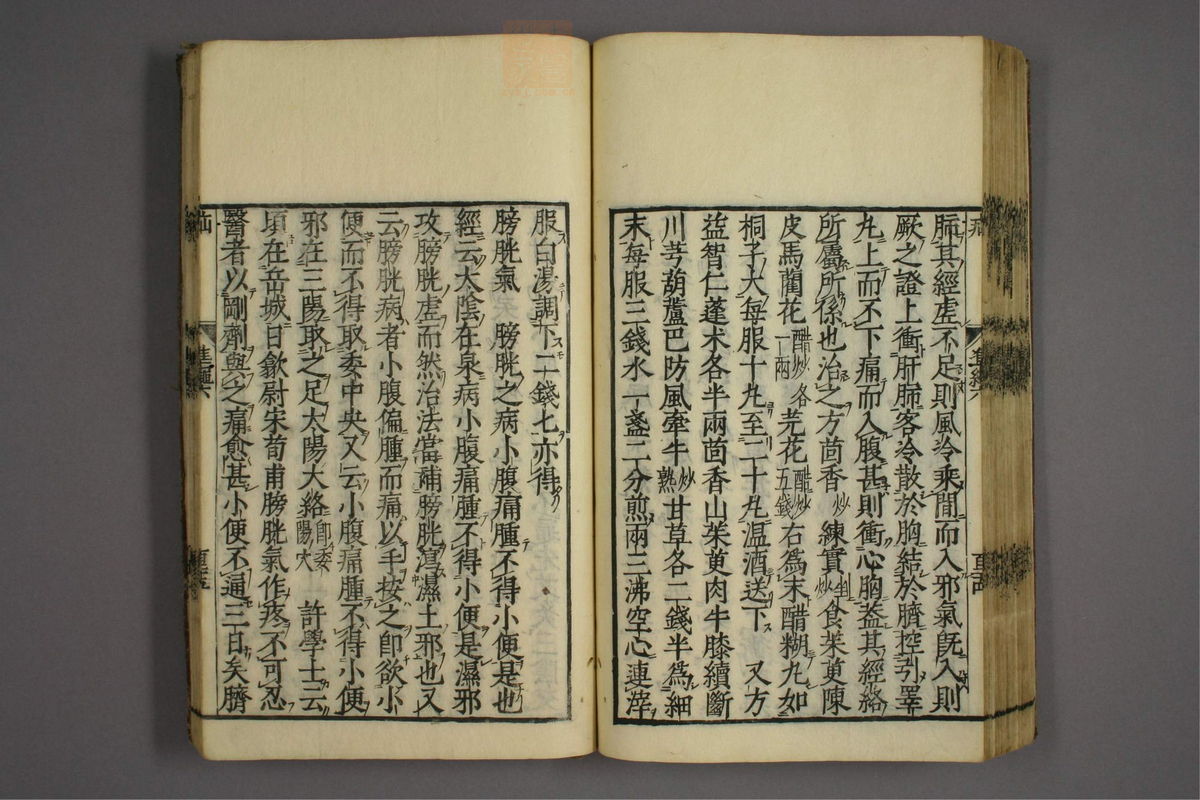 腑其經虛不足則風冷乘間而入邪氣既入則
厥之證上衝肝腑客冷散於胸結於臍控引睪
丸上而不下痛而入腹甚則衝心胸蓋其經絡
所屬所係也治之方茴香炒練實剉炒食茱萸陳
皮馬藺花醋炒各一兩芫花醋炒五錢右為末醋糊丸如
桐子大每服十丸至二十丸溫酒送下 又方
益智仁蓬朮各半兩茴香山茱萸肉牛膝續斷
川芎葫蘆巴防風牽牛炒熟甘草各二錢半為細
末每服三錢水一盞二分煎兩三沸空心連滓
服白湯調下二錢七亦得
膀胱氣 膀胱之病小腹痛腫不得小便是也
經云太陰在泉病小腹痛腫不得小便是濕邪
攻膀胱虛而然治法當補膀胱瀉濕土邪也又
云膀胱病者小腹偏腫而痛以手按之即欲小
便而不得取委中央又云小腹痛腫不得小便
邪在三陽取之足太陽大絡即委陽穴 許學士云
頃在岳城日歙尉宋荀甫膀胱氣作疼不可忍
醫者以剛劑與之痛愈甚小便不通三日矣臍